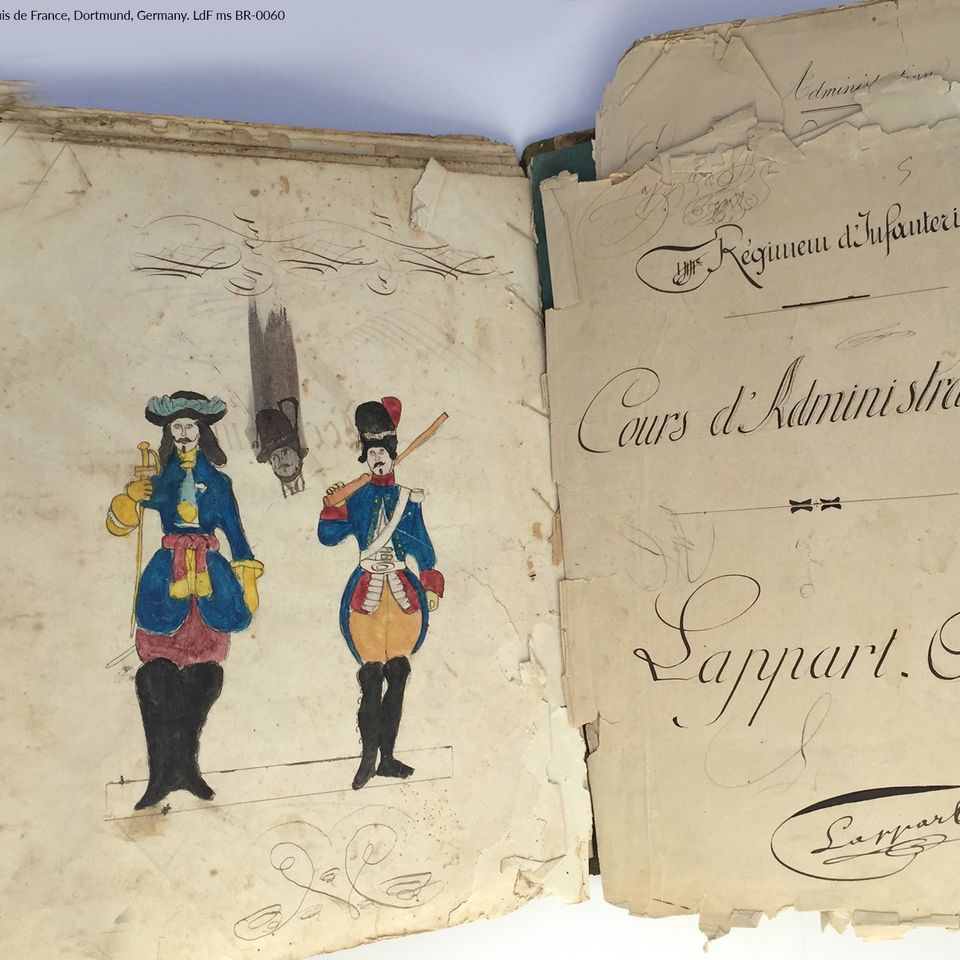 uis de France, Dortmund, Germany. LdF ms BR-0060
Administration
Régiment d'Infanteri
Cours d'Administra
Lappart. C
Lappart